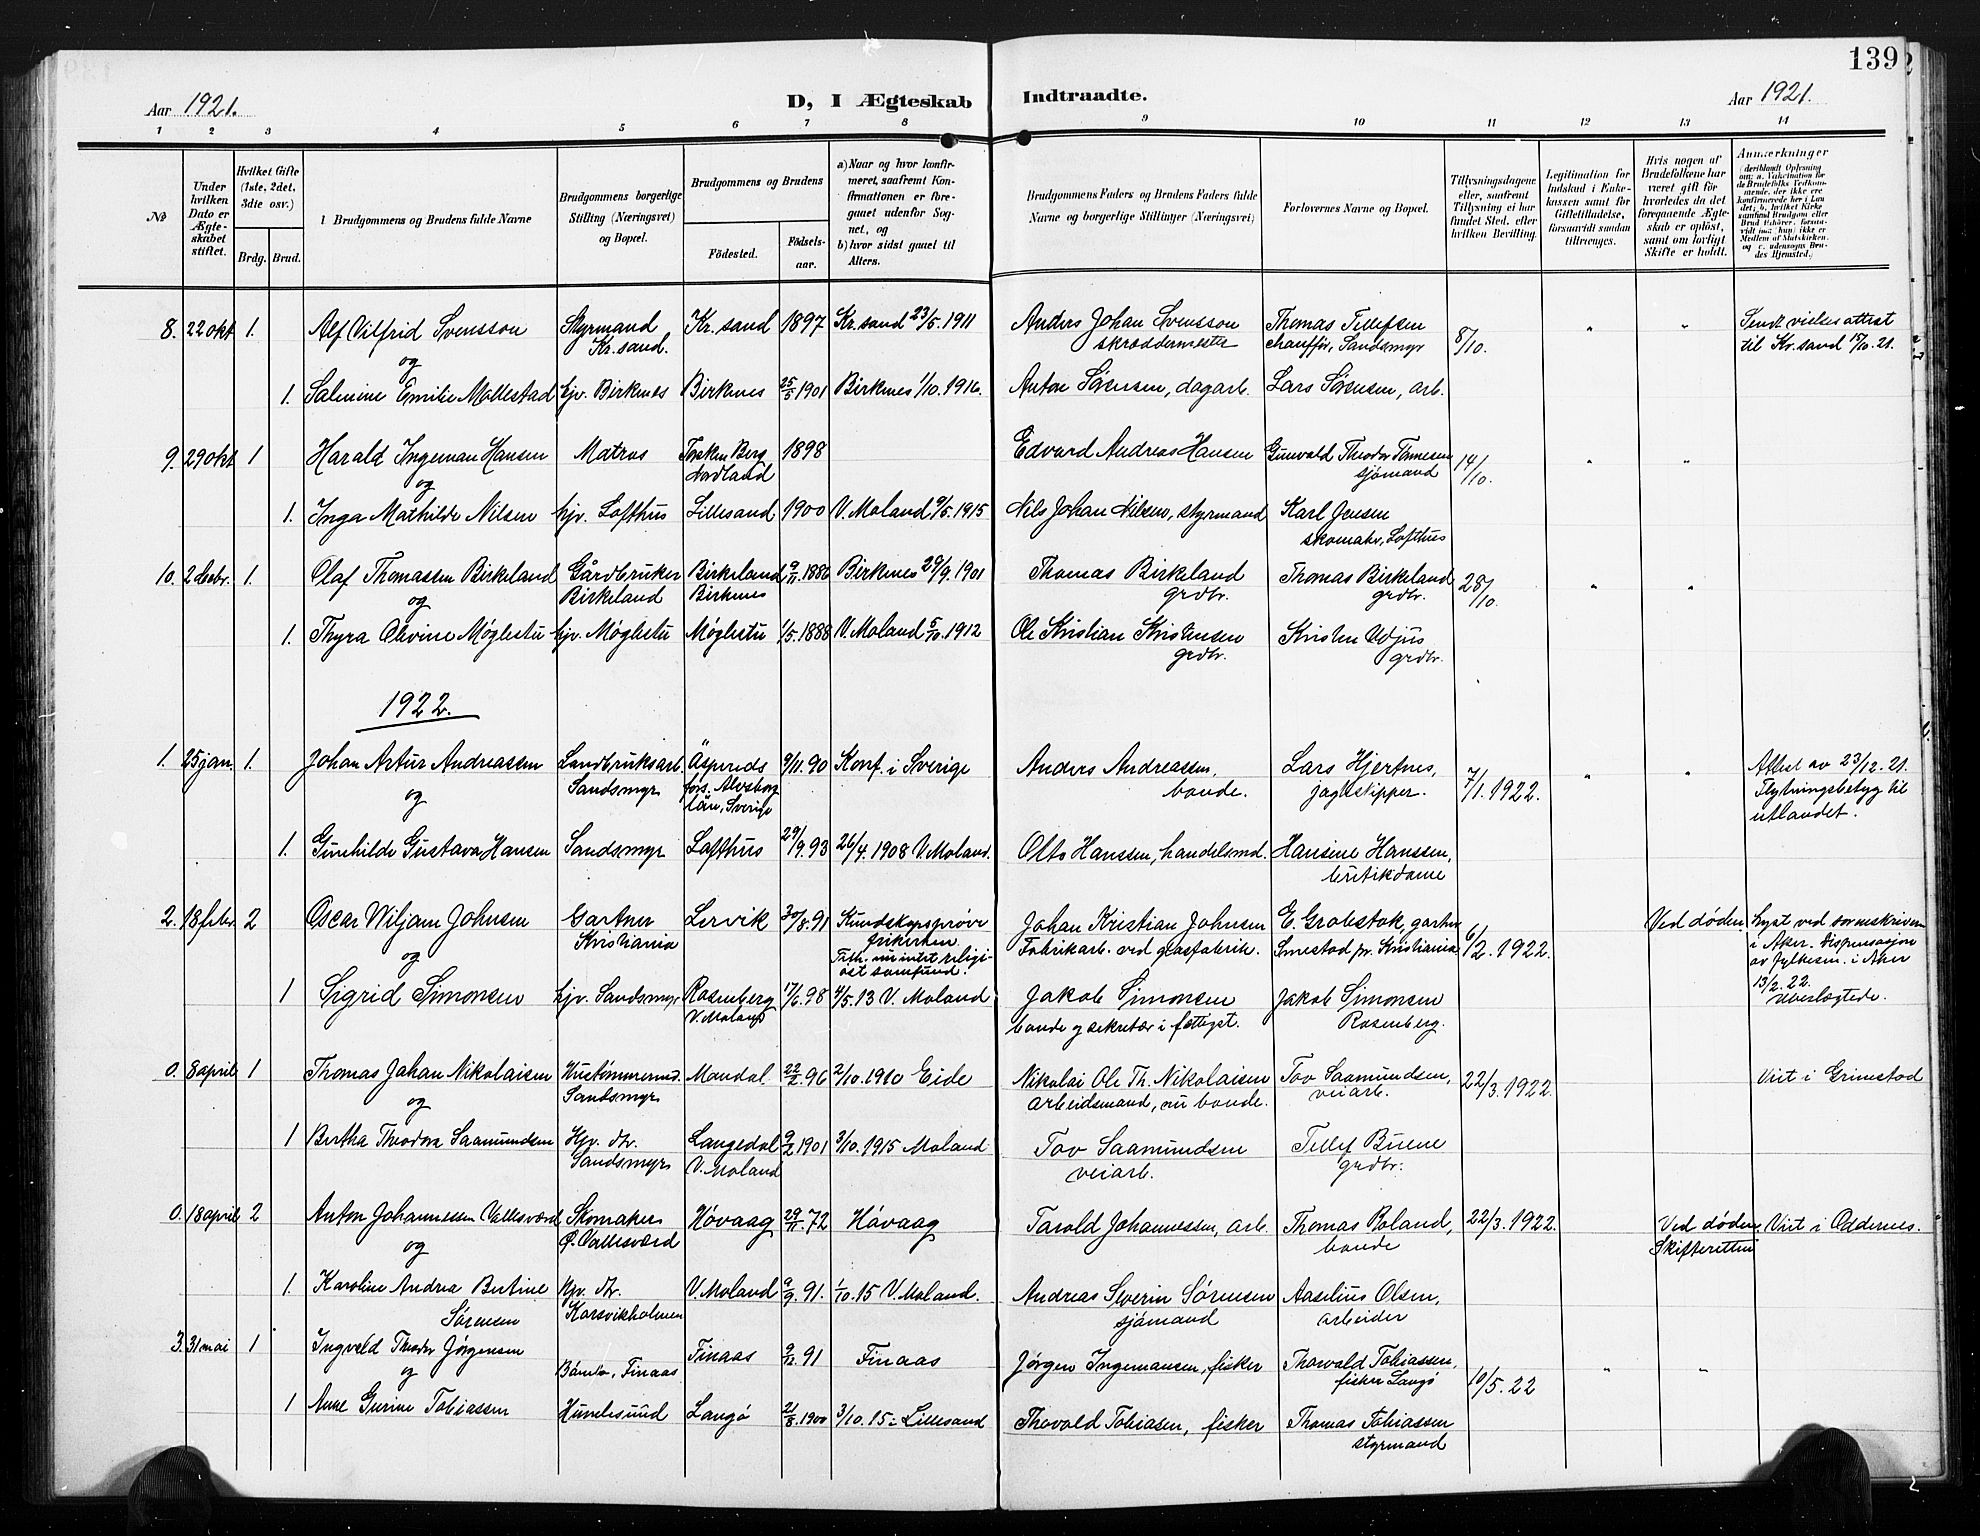 139
Aar 1921.
D, I Ægteskab Indtraadte.
Aar 1921.
1 2 3 4 5 6 7 8 9 10 11 12 13 14
No
Under hvilken Dato er Ægteskabet stiftet.
Hvilket Gifte (1ste, 2det, 3die osv.)
Brdg. Brud.
Brudgommens og Brudens fulde Navne
Brudgommens borgerlige Stilling (Næringsvei) og Bopæl.
Brudgommens og Brudens
Fødested.
Fødselsaar.
a) Naar og hvor konfirmeret, saafremt Konfirmationen er foregaaet udenfor Sognet, og
b) hvor sidst gaaet til Alters.
Brudgommens Faders og Brudens Faders fulde Navne og borgerlige Stillinger (Næringsvei)
Forlovernes Navne og Bopæl.
Tillysningsdagene eller, saafremt Tillysning ei har fundet Sted, efter hvilken Bevilling.
Legitimation for Indskud i Enkekassen samt for Giftetilladelse, forsaavidt saadan tiltrænges.
Hvis nogen af Brudefolkene har været gift før hvorledes da det foregaaende Ægteskab er opløst, samt om lovligt Skifte er holdt.
Anmærkninger
8. 22 okt 1. Alf Vilfrid Svensson Styrmand Kr.sand. Kr.sand 1897 Kr.sand 23/5 1911 Anders Johan Svensson skræddermester Thomas Tellefsen chauffør, Sandsmyr 8/10. " " Sendt vielsesattest til Kr.sand 15/10.21.
og
1. Salmine Emilie Mollestad hjv. Birknes Birknes 25/5 1901 Birknes 1/10. 1916. Anton Sørensen, dagarb. Lars Sørensen, arb.
9. 29 okt 1 Harald Ingeman Hansen Matros Nordland 1898 Edvard Andreas Hansen Gunvald Theodor sjømand 14/10. " "
og
1. Inga Mathilde Nilsen hjv. Lofthus Lillesand 1900 V. Moland 9/5. 1915 Nils Johan Nilsen, styrmand Karl Jensen skomaker, Lofthus
10. 2 debr. 1. Olaf Thomassen Birkeland Gårdbruker Birkeland Birkeland Birknes 9/11. 1886 Birknes 29/9. 1901 Thomas Birkeland grdbr. Thomas Birkeland grdbr. 28/10. " "
og
1. Thyra Olivine Møglestu hjv. Møglestu Møglestu 1/5. 1888 V. Moland 5/10. 1912 Ole Kristian Kristensen grdbr. Kristen Vedjus grdbr.
1922.
1. 25 jan. 1. Johan Artur Andreassen Landbruksarb. Sandsmyr förs. Älvsborg län, Sverige 9/11. 90 Konf. i Sverige Anders Andreassen, bonde. Lars Hjertnes, jagtskipper. 7/1. 1922. " " Attest av 23/12. 21. Flytningsbetyg til utlandet.
og
1. Gunhilde Gustava Hansen Sandsmyr Lofthus 29/9. 93 26/4. 1908 V. Moland. Otto Hanssen, handelsmd. Hansine Hanssen, butikdame
2. 18 febr. 2 Oscar Wiljam Johnsen Gartner Kristiania Lervik 30/8. 91 Kundskapsprøve frikirken Tilh. nu intet religiøst samfund. Johan Kristian Johnsen Fabrikarb. ved glasfabrik. E. Grobstok, gartner Smestad pr. Kristiania 6/2. 1922. Ved døden Lyst ved sorenskriveren i Aker. Dispensasjon av fylkesm. i Aker 13/2. 22. Uberlægtede.
og
1 Sigrid Simonsen hjv. Sandsmyr Rosenberg V. Moland 17/6. 98 4/5. 13 V. Moland Jakob Simonsen bonde og sekretær i fattigst. Jakob Simonsen Rosenberg.
0. 8 april 1 Thomas Johan Nikolaisen Hustømmermd. Sandsmyr Mandal 22/2. 96 2/10. 1910 Eide Nikolai Ole Th. Nikolaisen arbeidsmand, nu bonde. Tov Saamundsen, veiarb. 22/3. 1922. Viet i Grimstad
og
1 Bertha Theodora Saamundsen Hjv. dtr. Sandsmyr Langedal V. Moland 9/2 1901 3/10. 1915 Moland Tov Saamundsen veiarb. Tellef Buene grdbr.
0. 18 april 2 Anton Johannessen Vallesværd Skomaker Ø. Vallesværd Høvaag 29/11 72 Høvaag Tarald Johannessen, arb. Thomas Roland, bonde 22/3. 1922. Ved døden Skifteretten Viet i Oddernes.
og
1. Karoline Andrea Bertine Sørensen Hjv. dtr. Korsvikholmen V. Moland 9/9. 91. 1/10. 15 V. Moland. Andreas Severin Sørensen sjømand Aaselius Olsen, arbeider
3. 31 mai 1 Ingvald Theodor Jørgensen Bømlo, Finaas Finaas 2/12 91 Finaas Jørgen Ingemansen, fisker Thorvald Tobiassen, fisker Langø 10/5. 22 " "
og
1 Anne Gurine Tobiassen Humlesund Langø 21/8. 1900 3/10. 15 i Lillesand Thovald Tobiasen, fisker Thomas Tobiassen styrmand